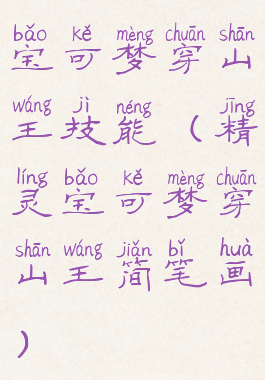 bǎo kě mèng chuān shān
宝可梦穿山
wáng jì néng jīng
王技能（精
líng bǎo kě mèng chuān
灵宝可梦穿
shān wáng jiǎn bǐ huà
山王简笔画
）